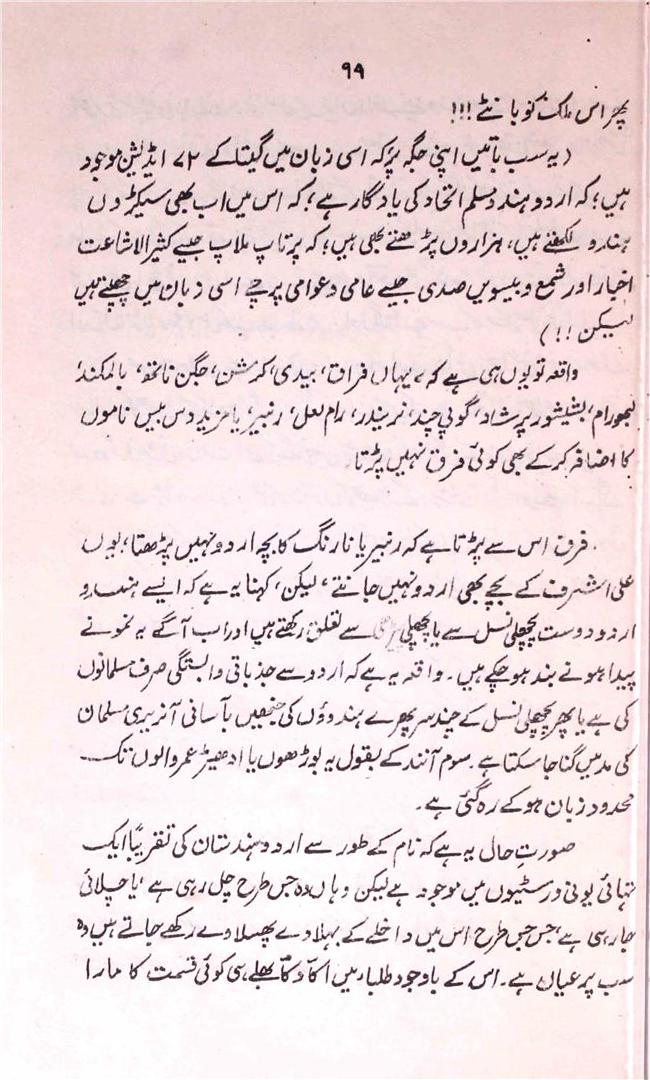 ۹۹
پھر اس ملک کو بانٹے !!!
( یہ سب باتیں اپنی جگہ پر کہ اسی زبان میں گیتا کے ۷۲ ایڈیشن موجود
ہیں؛ کہ اردو ہندو مسلم اتحاد کی یادگار ہے؛ کہ اس میں اب بھی سیکڑوں
ہندو لکھتے ہیں، ہزاروں پڑھتے بھی ہیں؛ کہ پرتاپ ملاپ جیسے کثیر الاشاعت
اخبار اور شمع و بیسویں صدی جیسے عامی و عوامی پرچے اسی زبان میں چھپتے ہیں
لیکن !! )
واقعہ تو یوں ہی ہے کہ یہاں فراق، بیدی، کرشن، جگن ناتھ، بالمکند
لبھو رام، بشیشور پرشاد، گوپی چند، نریندر، رام لعل، رنبیر، یا مزید دس بیس ناموں
کا اضافہ کر کے بھی کوئی فرق نہیں پڑتا
فرق اس سے پڑتا ہے کہ رنبیر یا نارنگ کا بچہ اردو نہیں پڑھتا؛ یوں
علی اشرف کے بچے بھی اردو نہیں جانتے، لیکن، کہنا یہ ہے کہ ایسے ہندو
اردو دوست پچھلی نسل سے یا پچھلی پیڑھی سے تعلق رکھتے ہیں اور اب آگے یہ نمونے
پیدا ہونے بند ہو چکے ہیں۔ واقعہ یہ ہے کہ اردو سے جذباتی وابستگی صرف مسلمانوں
کی ہے یا پھر پچھلی نسل کے چند سر پھرے ہندوؤں کی جنھیں بآسانی آنریری مسلمان
کی مد میں گنا جا سکتا ہے۔ سوم آنند کے بقول یہ بوڑھوں یا ادھیڑ عمر والوں تک
محدود زبان ہو کے رہ گئی ہے۔
صورتِ حال یہ ہے کہ نام کے طور سے اردو ہندستان کی تقریباً ایک
تہائی یونی ورسٹیوں میں موجود ہے لیکن وہاں وہ جس طرح چل رہی ہے، یا چلائی
جا رہی ہے، جس جس طرح اس میں داخلے کے بہلاوے پھسلاوے رکھے جاتے ہیں وہ
سب پر عیاں ہے۔ اس کے باوجود طلباء میں اکا دکا بھلے ہی کوئی قسمت کا مارا